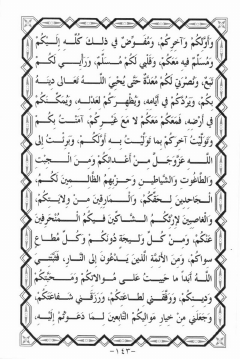 وَأَوَّلُكُمْ وَآخِرُكُمْ، وَمُفَوِّضٌ فِي ذلِكَ كُلِّهِ إِلَيْكُمْ
وَمُسَلِّمٌ فِيهِ مَعَكُمْ، وَقَلْبِي لَكُمْ مُسَلِّمٌ، وَرَأْيِي لَكُمْ
تَبَعٌ، وَنُصْرَتِي لَكُمْ مُعَدَّةٌ حَتَّى يُحْيِيَ اللَّهُ تَعَالى دِينَهُ
بِكُمْ، وَيَرُدَّكُمْ فِي أَيَّامِهِ، وَيُظْهِرَكُمْ لِعَدْلِهِ، وَيُمَكِّنَكُمْ
فِي أَرْضِهِ، فَمَعَكُمْ مَعَكُمْ لَا مَعَ غَيْرِكُمْ، آمَنْتُ بِكُمْ
وَتَوَلَّيْتُ آخِرَكُمْ بِمَا تَوَلَّيْتُ بِهِ أَوَّلَكُمْ، وَبَرِئْتُ إِلَى
اللَّهِ عَزَّوَجَلَّ مِنْ أَعْدَائِكُمْ وَمِنَ الْجِبْتِ
وَالطَّاغُوتِ وَالشَّيَاطِينِ وَحِزْبِهِمُ الظَّالِمِينَ لَكُمْ،
الْجَاحِدِينَ لِحَقِّكُمْ، وَالْمَارِقِينَ مِنْ وِلَايَتِكُمْ،
وَالْغَاصِبِينَ لِإِرْثِكُمُ الشَّاكِّينَ فِيكُمُ الْمُنْحَرِفِينَ
عَنْكُمْ، وَمِنْ كُلِّ وَلِيجَةٍ دُونَكُمْ وَكُلِّ مُطَاعٍ
سِوَاكُمْ، وَمِنَ الْأَئِمَّةِ الَّذِينَ يَدْعُونَ إِلَى النَّارِ، فَثَبَّتَنِيَ
اللَّهُ أَبَداً مَا حَيِيتُ عَلَى مُوَالَاتِكُمْ وَمَحَبَّتِكُمْ
وَدِينِكُمْ، وَوَفَّقَنِي لِطَاعَتِكُمْ، وَرَزَقَنِي شَفَاعَتَكُمْ،
وَجَعَلَنِي مِنْ خِيَارِ مَوَالِيكُمُ التَّابِعِينَ لِمَا دَعَوْتُمْ إِلَيْهِ،
-١٤٣-